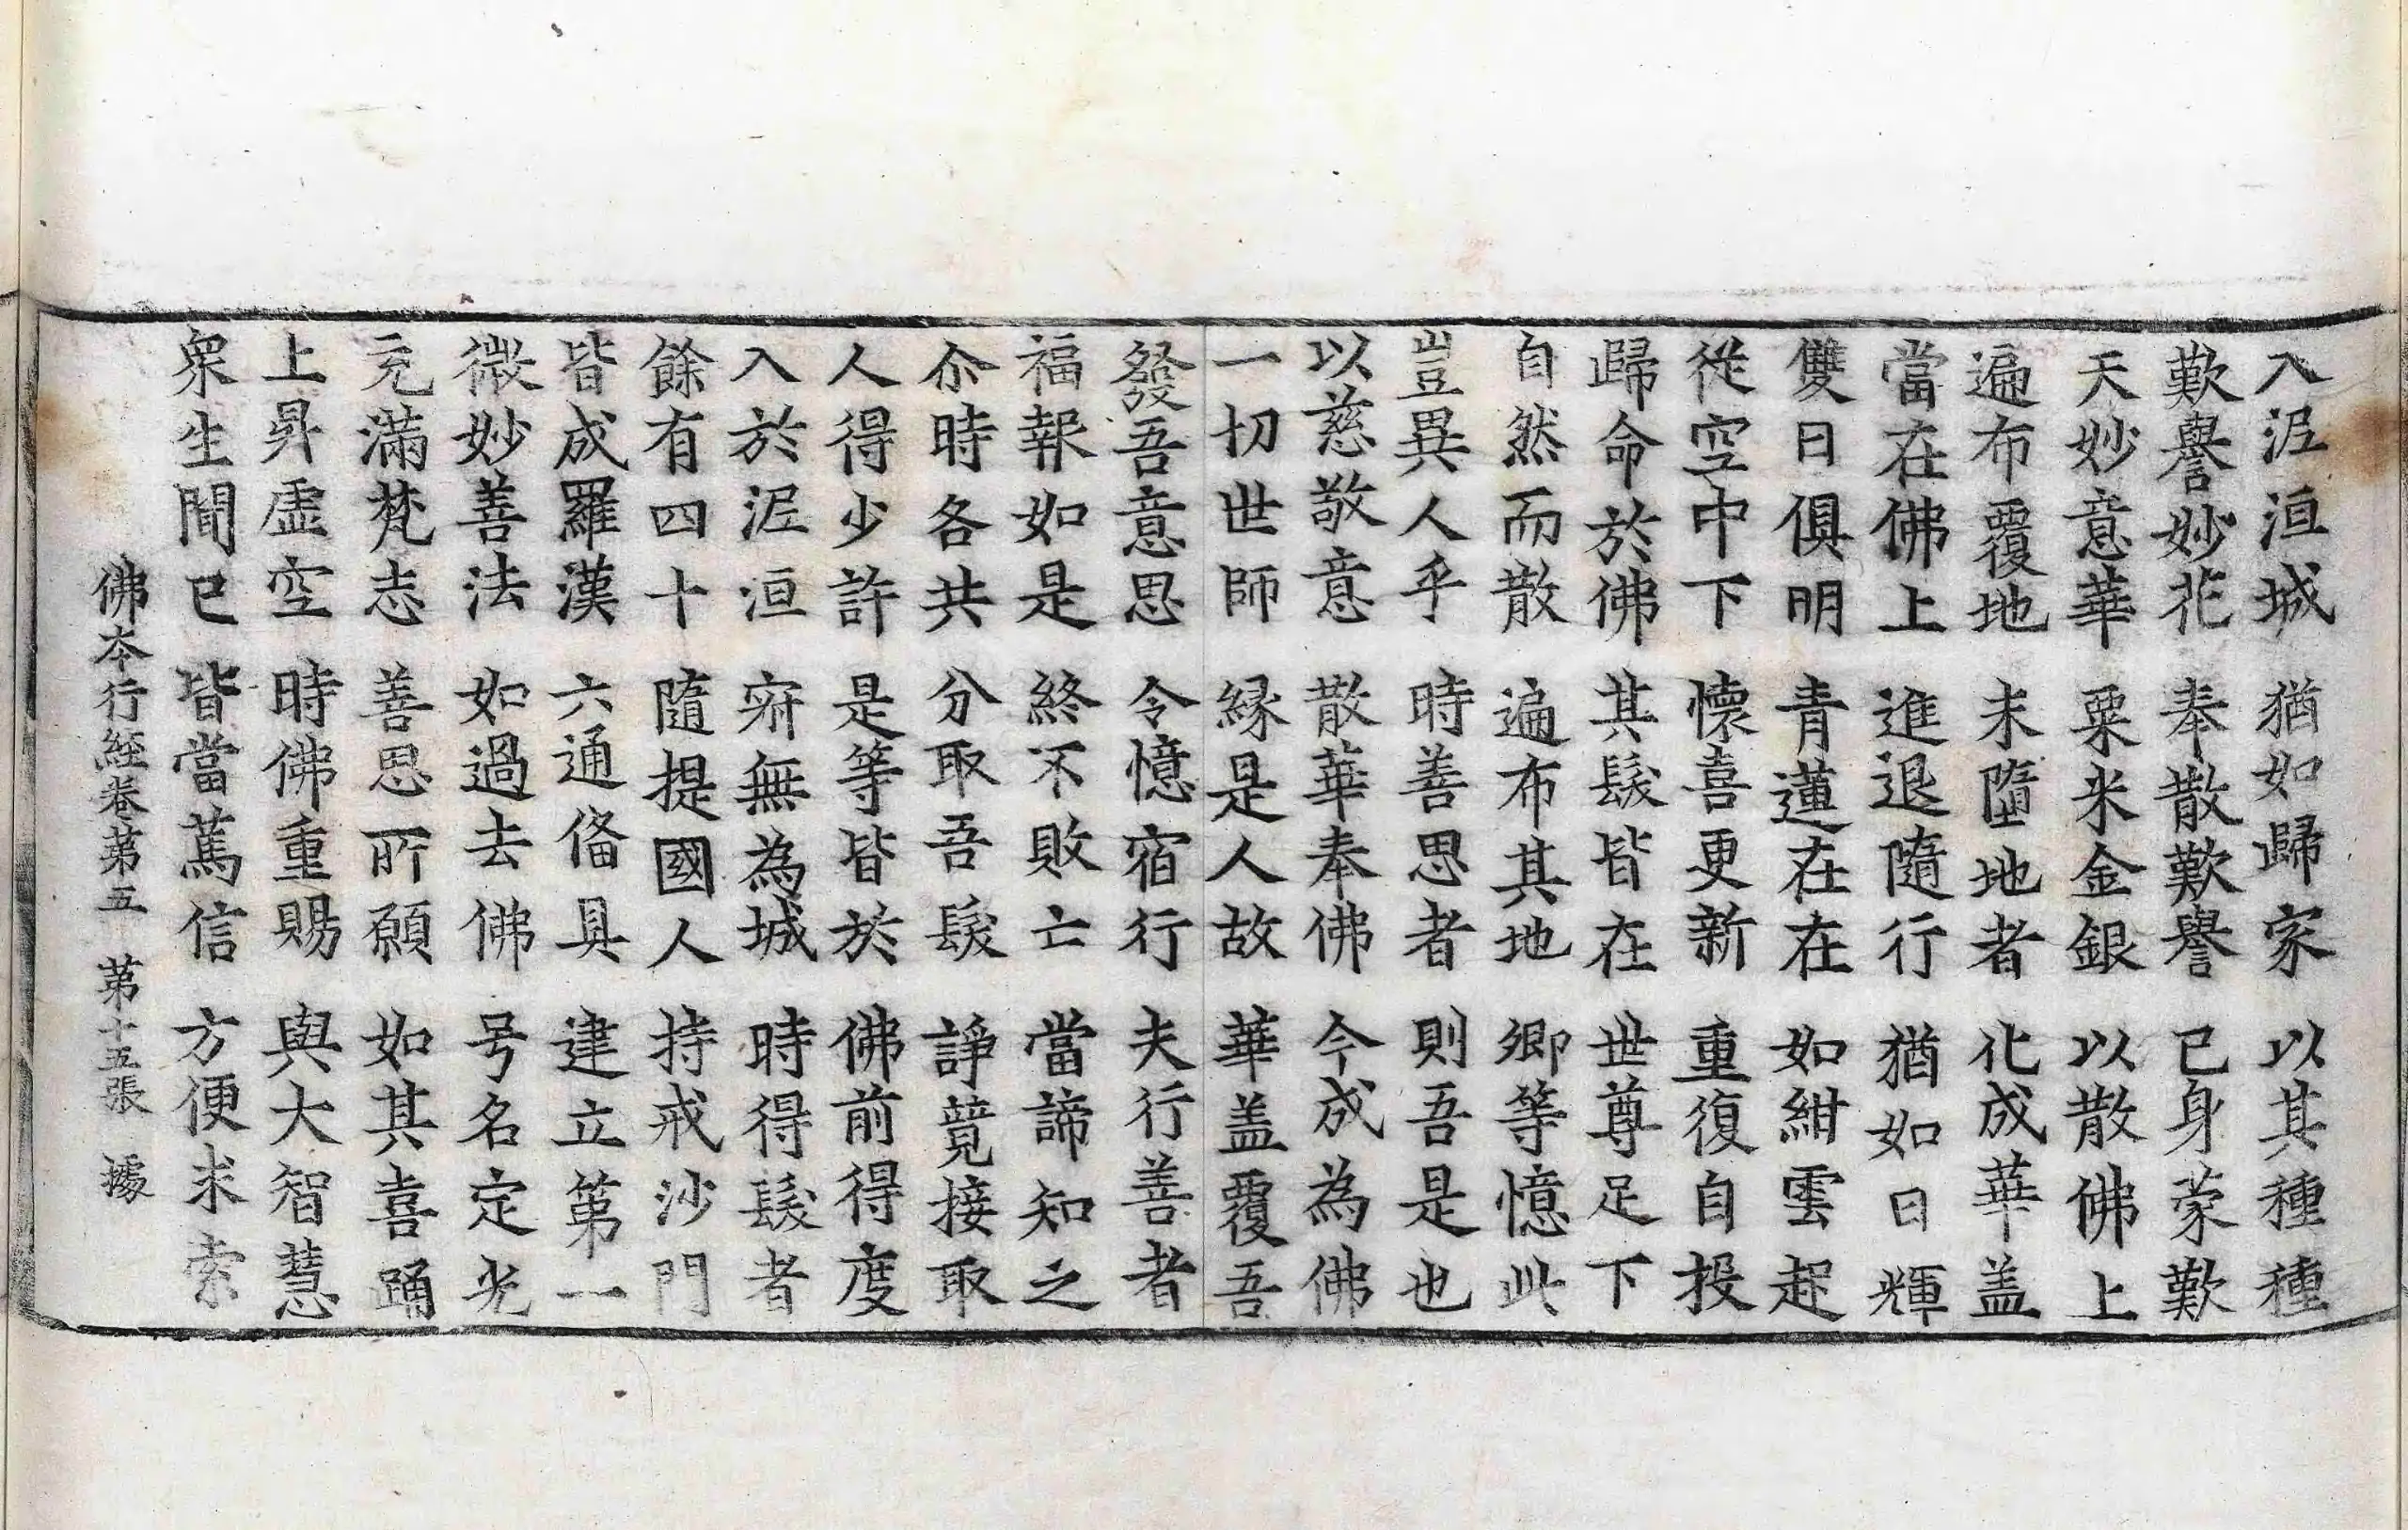 入泥洹城 猶如歸家 以其種種
歎譽妙花 奉散歎譽 已身蒙歎
天妙意華 粟米金銀 以散佛上
遍布覆地 未墮地者 化成華盖
當在佛上 進退隨行 猶如日輝
雙日俱明 青蓮在在 如紺雲起
從空中下 懷喜更新 重復自投
歸命於佛 其髮皆在 世尊足下
自然而散 遍布其地 卿等憶此
豈異人乎 時善思者 則吾是也
以慈敬意 散華奉佛 今成為佛
一切世師 緣是人故 華盖覆吾
發吾意思 令憶宿行 夫行善者
福報如是 終不敗亡 當諦知之
尒時各共 分取吾髮 諍競接取
人得少許 是等皆於 佛前得度
入於泥洹 寂無為城 時得髮者
餘有四十 隨提國人 持戒沙門
皆成羅漢 六通俻具 建立第一
微妙善法 如過去佛 号名定光
充滿梵志 善思所願 如其喜踊
上昇虛空 時佛重賜 與大智慧
衆生聞已 皆當篤信 方便求索
佛本行經卷第五 第十五張 據